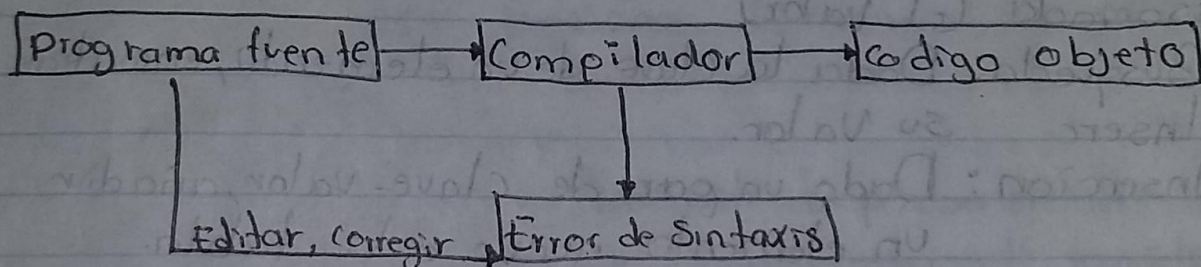 Programa fuente Compilador Codigo objeto
Editar, corregir Error de Sintaxis